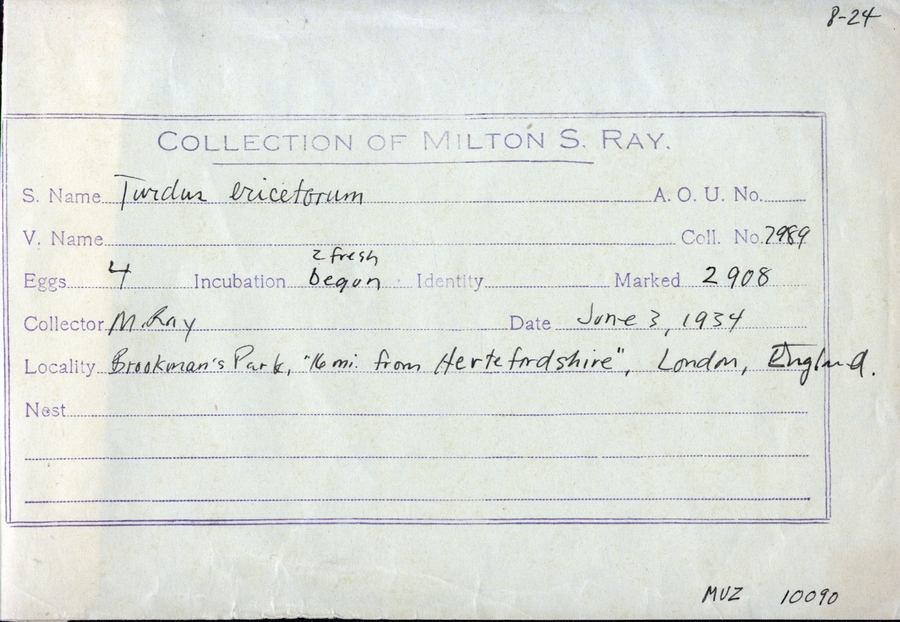 8-24
COLLECTION OF MILTON S. RAY.
S. Name Turdus ericetorum A. O. U. No.
V. Name Coll. No. 7989
2 fresh
Eggs 4 Incubation begun Identity Marked 2908
Collector M. Ray Date June 3, 1934
Locality Brookman's Park, "16 mi. from Hertefordshire", London, England.
Nest
MVZ 10090